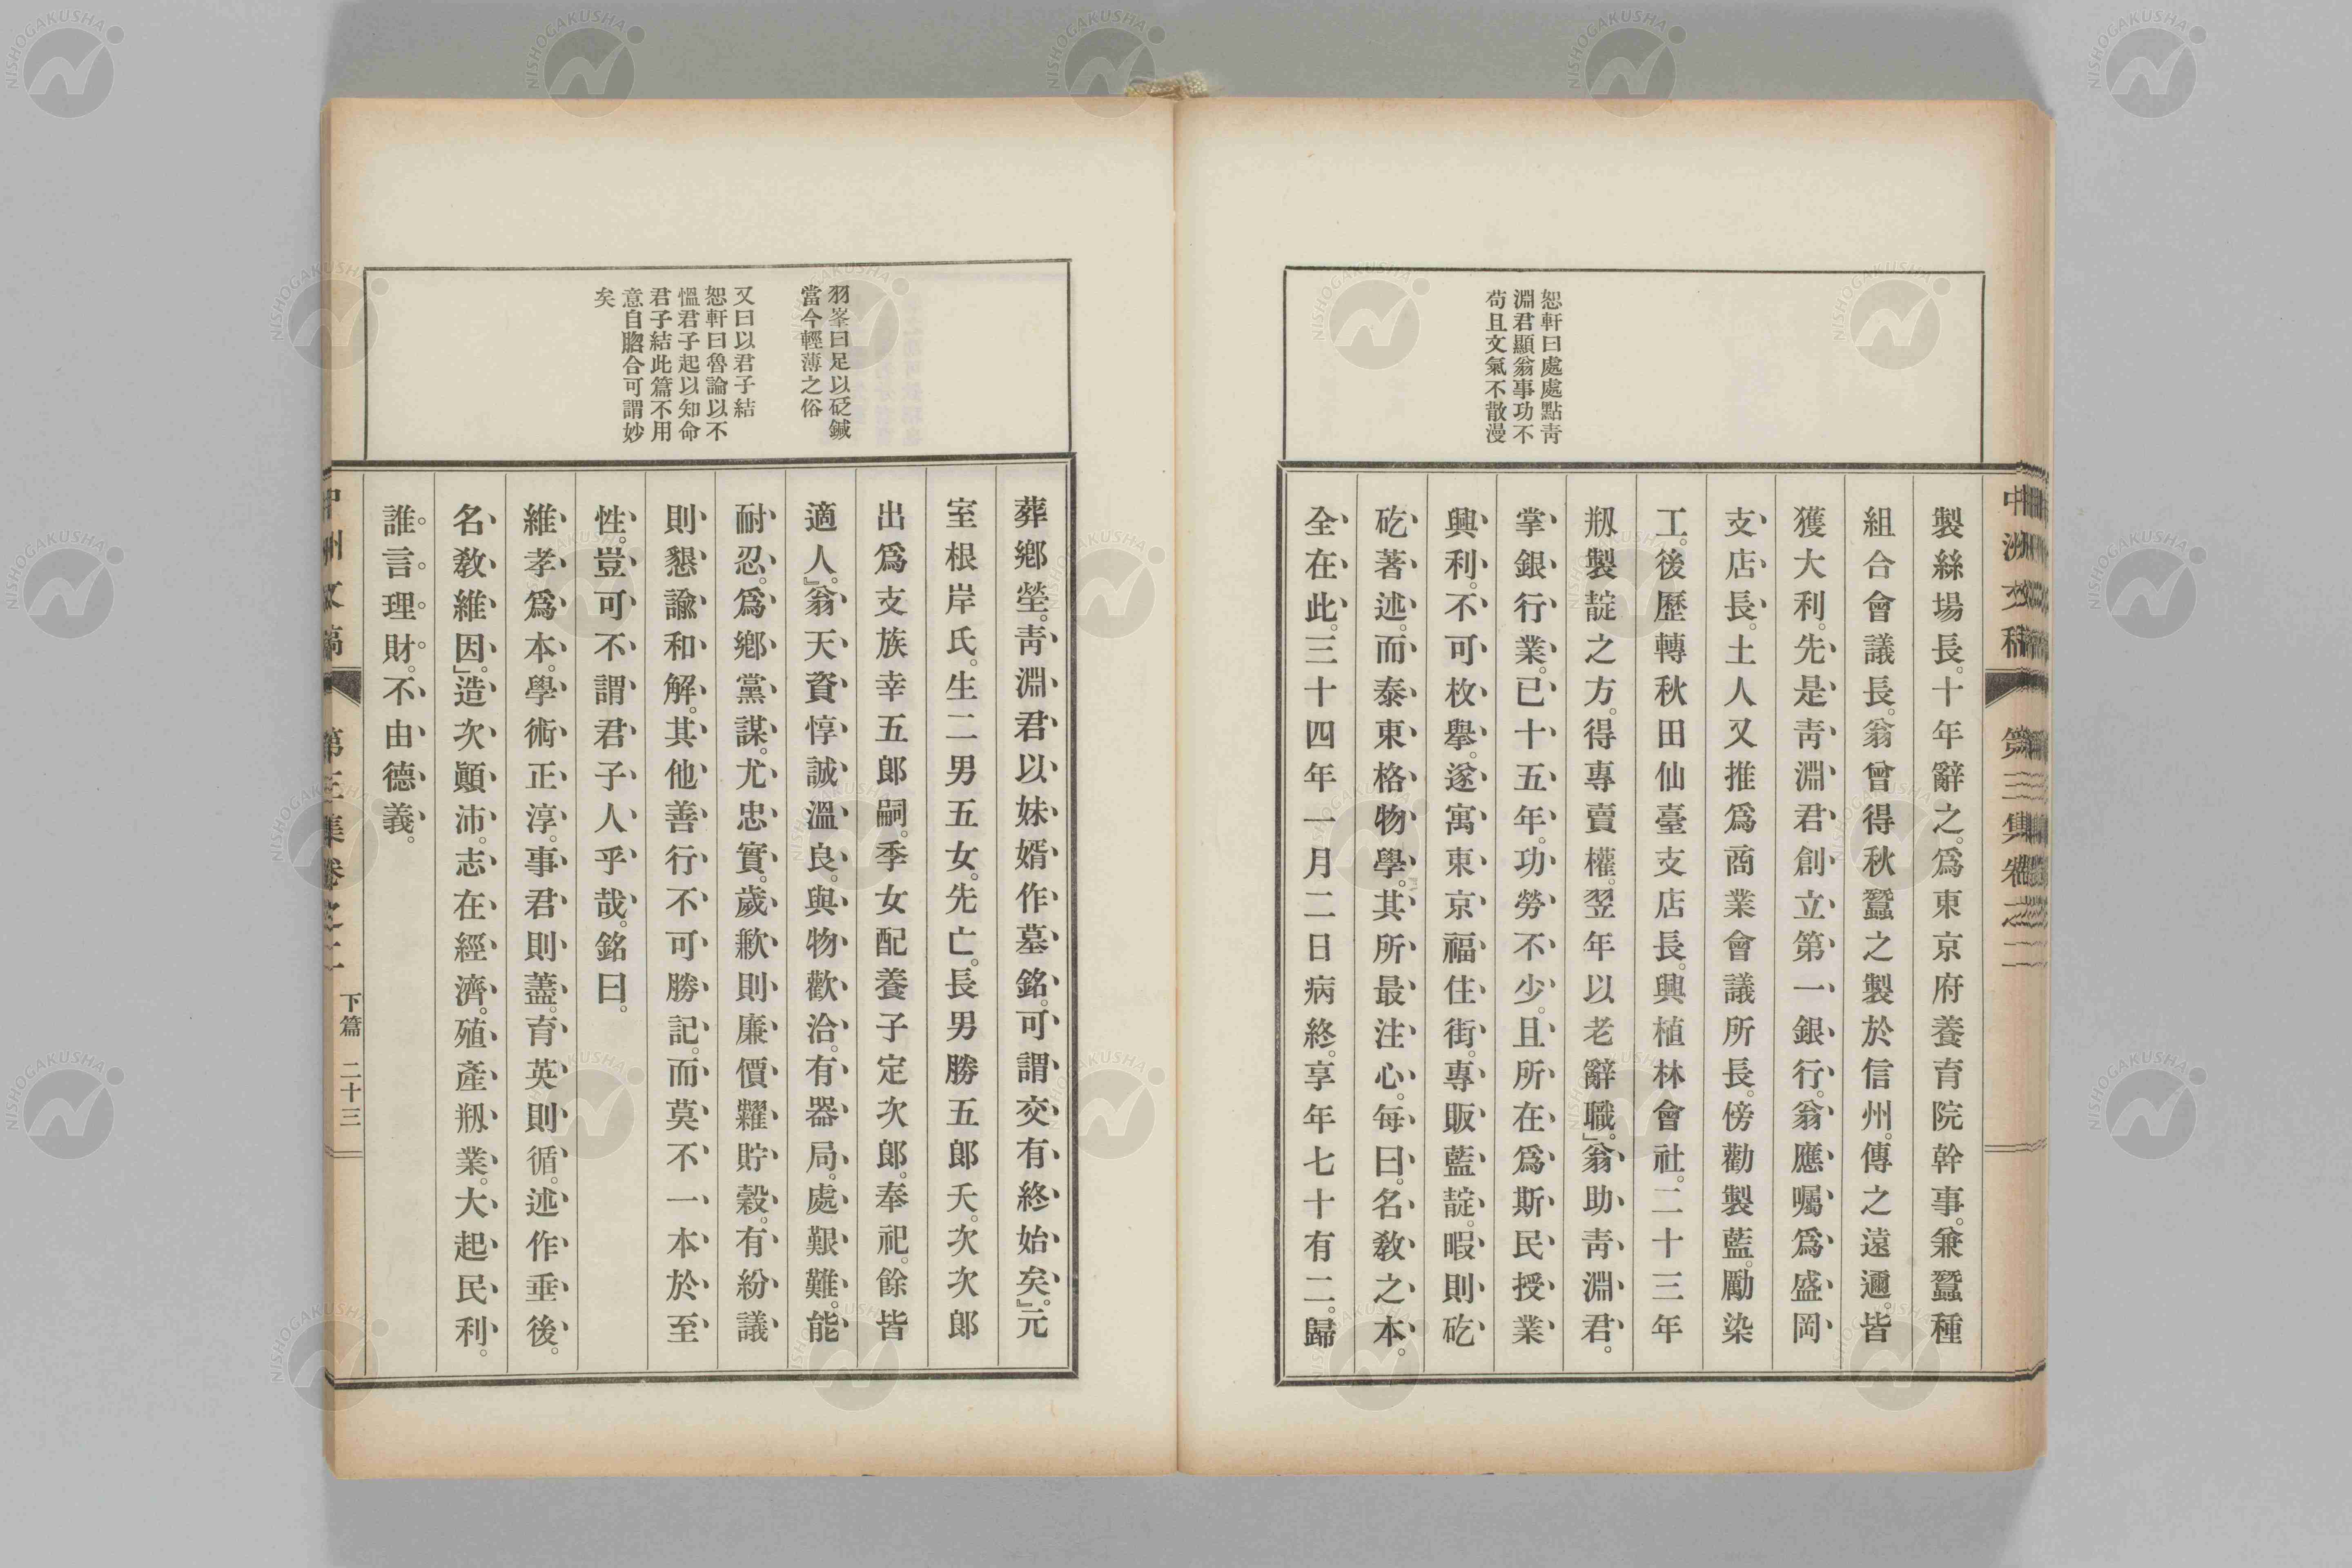 恕軒曰處處點靑
淵君顯翁事功不
苟且文氣不散漫
製絲場長。十年辭之。爲東京府養育院幹事。兼蠶種
組合會議長。翁曾得秋蠶之製於信州。傳之遠邇。皆
獲大利。先是靑淵君創立第一銀行。翁應囑爲盛岡
支店長。土人又推爲商業會議所長。傍勸製藍。勵染
工。後歷轉秋田仙臺支店長。興植林會社。二十三年
剏製靛之方。得專賣權。翌年以老辭職。」翁助靑淵君。
掌銀行業。已十五年。功勞不少。且所在爲斯民授業
興利。不可枚擧。遂寓東京福住街。專販藍靛。暇則矻
矻著述。而泰東格物學。其所最注心。每曰。名敎之本。
全在此。三十四年一月二日病終。享年七十有二。歸
羽峯曰足以砭鍼
當今輕薄之俗
又曰以君子結
恕軒曰魯論以不
慍君子起以知命
君子結此篇不用
意自䏜合可謂妙
矣
葬鄕塋。靑淵君以妹婿作墓銘。可謂交有終始矣。」元
室根岸氏。生二男五女。先亡。長男勝五郎夭。次次郎
出爲支族幸五郎嗣。季女配養子定次郎。奉祀。餘皆
適人。」翁天資惇誠溫良。與物歡洽。有器局。處艱難。能
耐忍。爲鄕黨謀。尤忠實。歲歉則廉價糶貯穀。有紛議
則懇諭和解。其他善行不可勝記。而莫不一本於至
性。豈可不謂君子人乎哉。銘曰。
維孝爲本。學術正淳。事君則藎。育英則循。述作垂後。
名敎維因。」造次顚沛。志在經濟。殖產剏業。大起民利。
誰言理財。不由德義。
中洲文稿 第三集卷之二 下篇 二十三